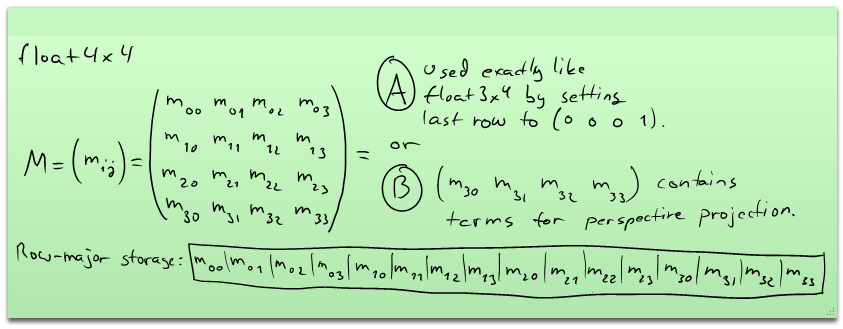 float4x4
M = (m_ij) = ( m_00 m_01 m_02 m_03
m_10 m_11 m_12 m_13
m_20 m_21 m_22 m_23
m_30 m_31 m_32 m_33 ) =
(A) Used exactly like
float3x4 by setting
last row to (0 0 0 1).
or
(B) (m_30 m_31 m_32 m_33) contains
terms for perspective projection.
Row-major storage: m_00 | m_01 | m_02 | m_03 | m_10 | m_11 | m_12 | m_13 | m_20 | m_21 | m_22 | m_23 | m_30 | m_31 | m_32 | m_33